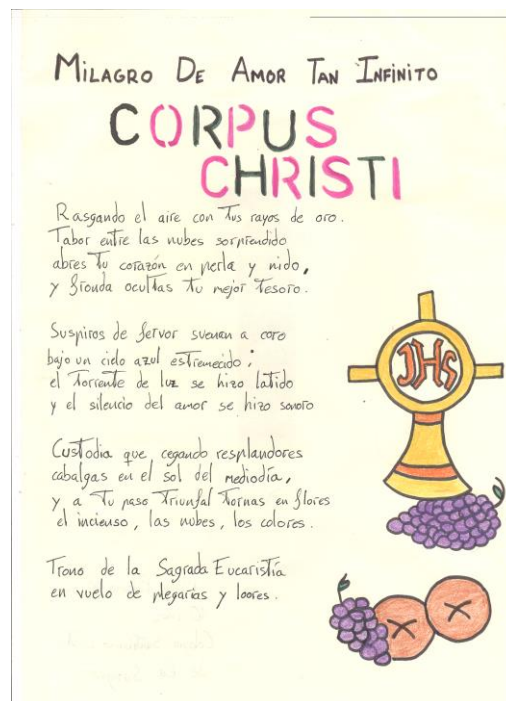 MILAGRO DE AMOR TAN INFINITO
CORPUS
CHRISTI
Rasgando el aire con Tus rayos de oro.
Tabor entre las nubes sorprendido
abres Tu corazón en perla y nido,
y fronda ocultas tu mejor Tesoro.
Suspiros de fervor suenan a coro
bajo un cielo azul estremecido;
el Torrente de luz se hizo latido
y el silencio del amor se hizo sonoro
Custodia que cegando resplandores
cabalgas en el sol del mediodía,
y a Tu paso Triunfal Tornas en flores
el incienso, las nubes, los colores.
Trono de la Sagrada Eucaristía
en vuelo de plegarias y loores.
JHS